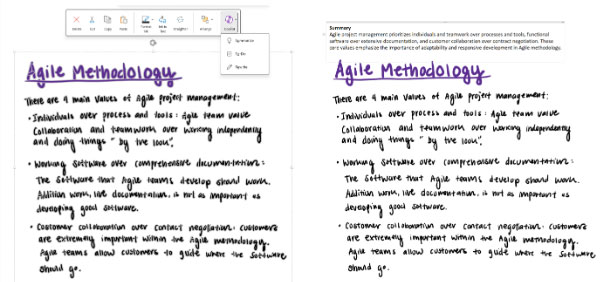 Agile Methodology
There are 4 main values of Agile project management:
• Individuals over process and tools: Agile team value
Collaboration and teamwork over working independently
and doing things "by the book".
• Working software over comprehensive documentation:
The software that Agile teams develop should work.
Addition work, like documentation, is not as important as
developing good software.
• Costomer collaboration over contact negotiation: customers
are extremely important within the Agile methodology.
Agile teams allow customers to guide where the software
should go.
Summary
Agile project management prioritizes individuals and teamwork over processes and tools, functional
software over extensive documentation, and customer collaboration over contract negotiation. These
core values emphasize the importance of adaptability and responsive development in Agile methodology.
Agile Methodology
There are 4 main values of Agile project management:
• Individuals over process and tools: Agile team value
Collaboration and teamwork over working independently
and doing things "by the book".
• Working software over comprehensive documentation:
The software that Agile teams develop should work.
Addition work, like documentation, is not as important as
developing good software.
• Costomer collaboration over contact negotiation: customers
are extremely important within the Agile methodology.
Agile teams allow customers to guide where the software
should go.